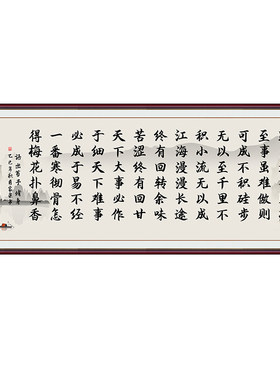 至事虽难做则
可成不积跬步
无以至千里不
积小流无以成
江海漫漫长途
终有回转余味
苦涩终有回甘
天下大事必作
于细天下难事
必成于易不经
一番寒彻骨怎
得梅花扑鼻香
语出荀子